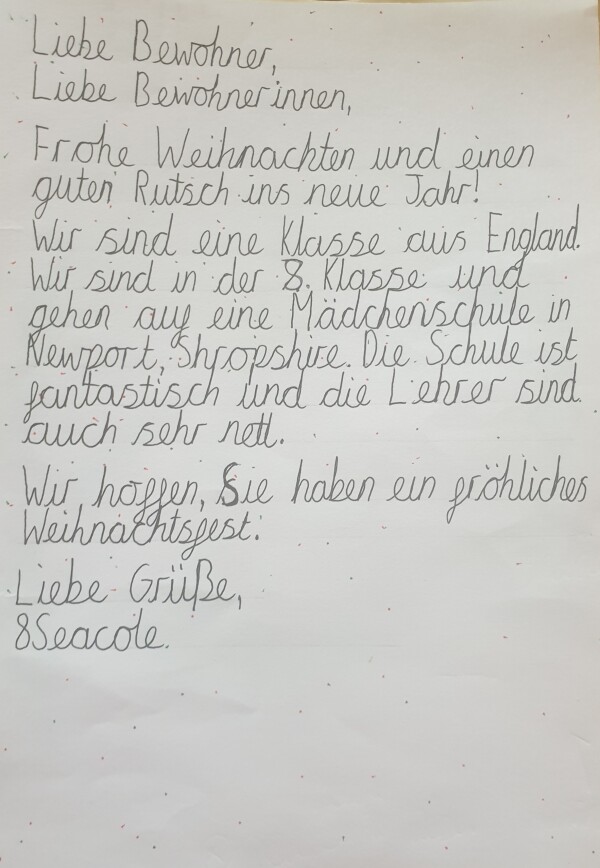 Liebe Bewohner,
Liebe Bewohnerinnen,
Frohe Weihnachten und einen
guten Rutsch ins neue Jahr!
Wir sind eine Klasse aus England.
Wir sind in der 8. Klasse und
gehen auf eine Mädchenschule in
Newport, Shropshire. Die Schule ist
fantastisch und die Lehrer sind
auch sehr nett.
Wir hoffen, Sie haben ein fröhliches
Weihnachtsfest.
Liebe Grüße,
8Seacole.